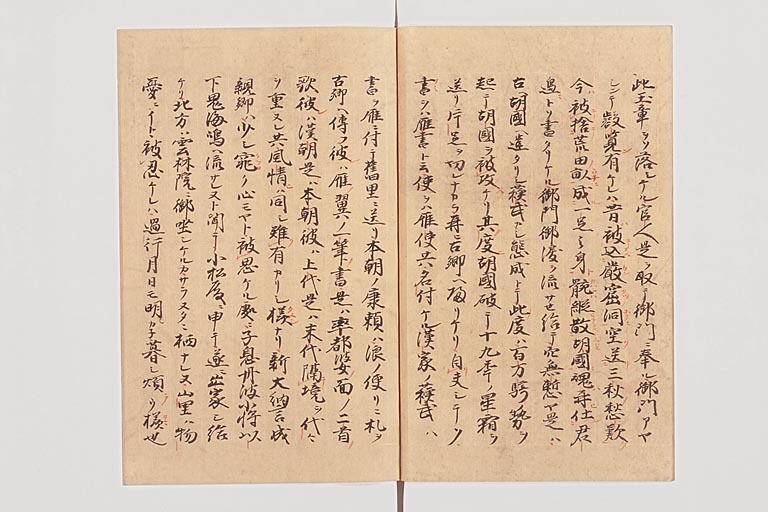 此玉章ヲソ落シケル官人是ヲ取テ御門ニ奉ル御門アヤ
シンテ叡覧有ケレハ昔被込巌窟洞空送三秋愁歎
今被捨荒田畝成一足之身骸縦散胡國魂再仕君
邊トソ書タリケル御門御涙ヲ流サセ給テ穴無慙ヤ是ハ
古胡國ヘ遣タリシ蘓武カシ態成トテ此度ハ百万騎勢ヲ
起テ胡國ヲ被攻ケリ其度胡國破テ十九年ノ星霜ヲ
送リ片足ヲ切レナカラ再ヒ古郷ヘ歸リケリ自夫シテソ
書ヲハ雁書ト云使ヲハ雁使共名付ケル漢家ノ蘓武ハ
書ヲ雁ニ付テ舊里ニ送リ本朝ノ康頼ハ浪ノ便リニ札ヲ
古郷ヘ傳フ彼ハ雁翼ノ一筆書是ハ率都婆面ノ二首
歌彼ハ漢朝是ハ本朝彼ハ上代是ハ末代隔境ヲ代々
ヲ重ヌレ共風情ハ同シ難有カリシ様ナリ新大納言成
親卿ハ少シ寛ク心ミヤト被思ケル處ニ子息丹波少将以
下鬼海嶋ヘ流サレヌト聞テ小松殿ニ申テ遂ニ出家シ給
ケリ北方ハ雲林院ニ御坐シケルカサラヌタニ栖ナレヌ山里ハ物
憂ニイトヽ被忍ケレハ過行月日モ明シカネ暮シ煩フ様也